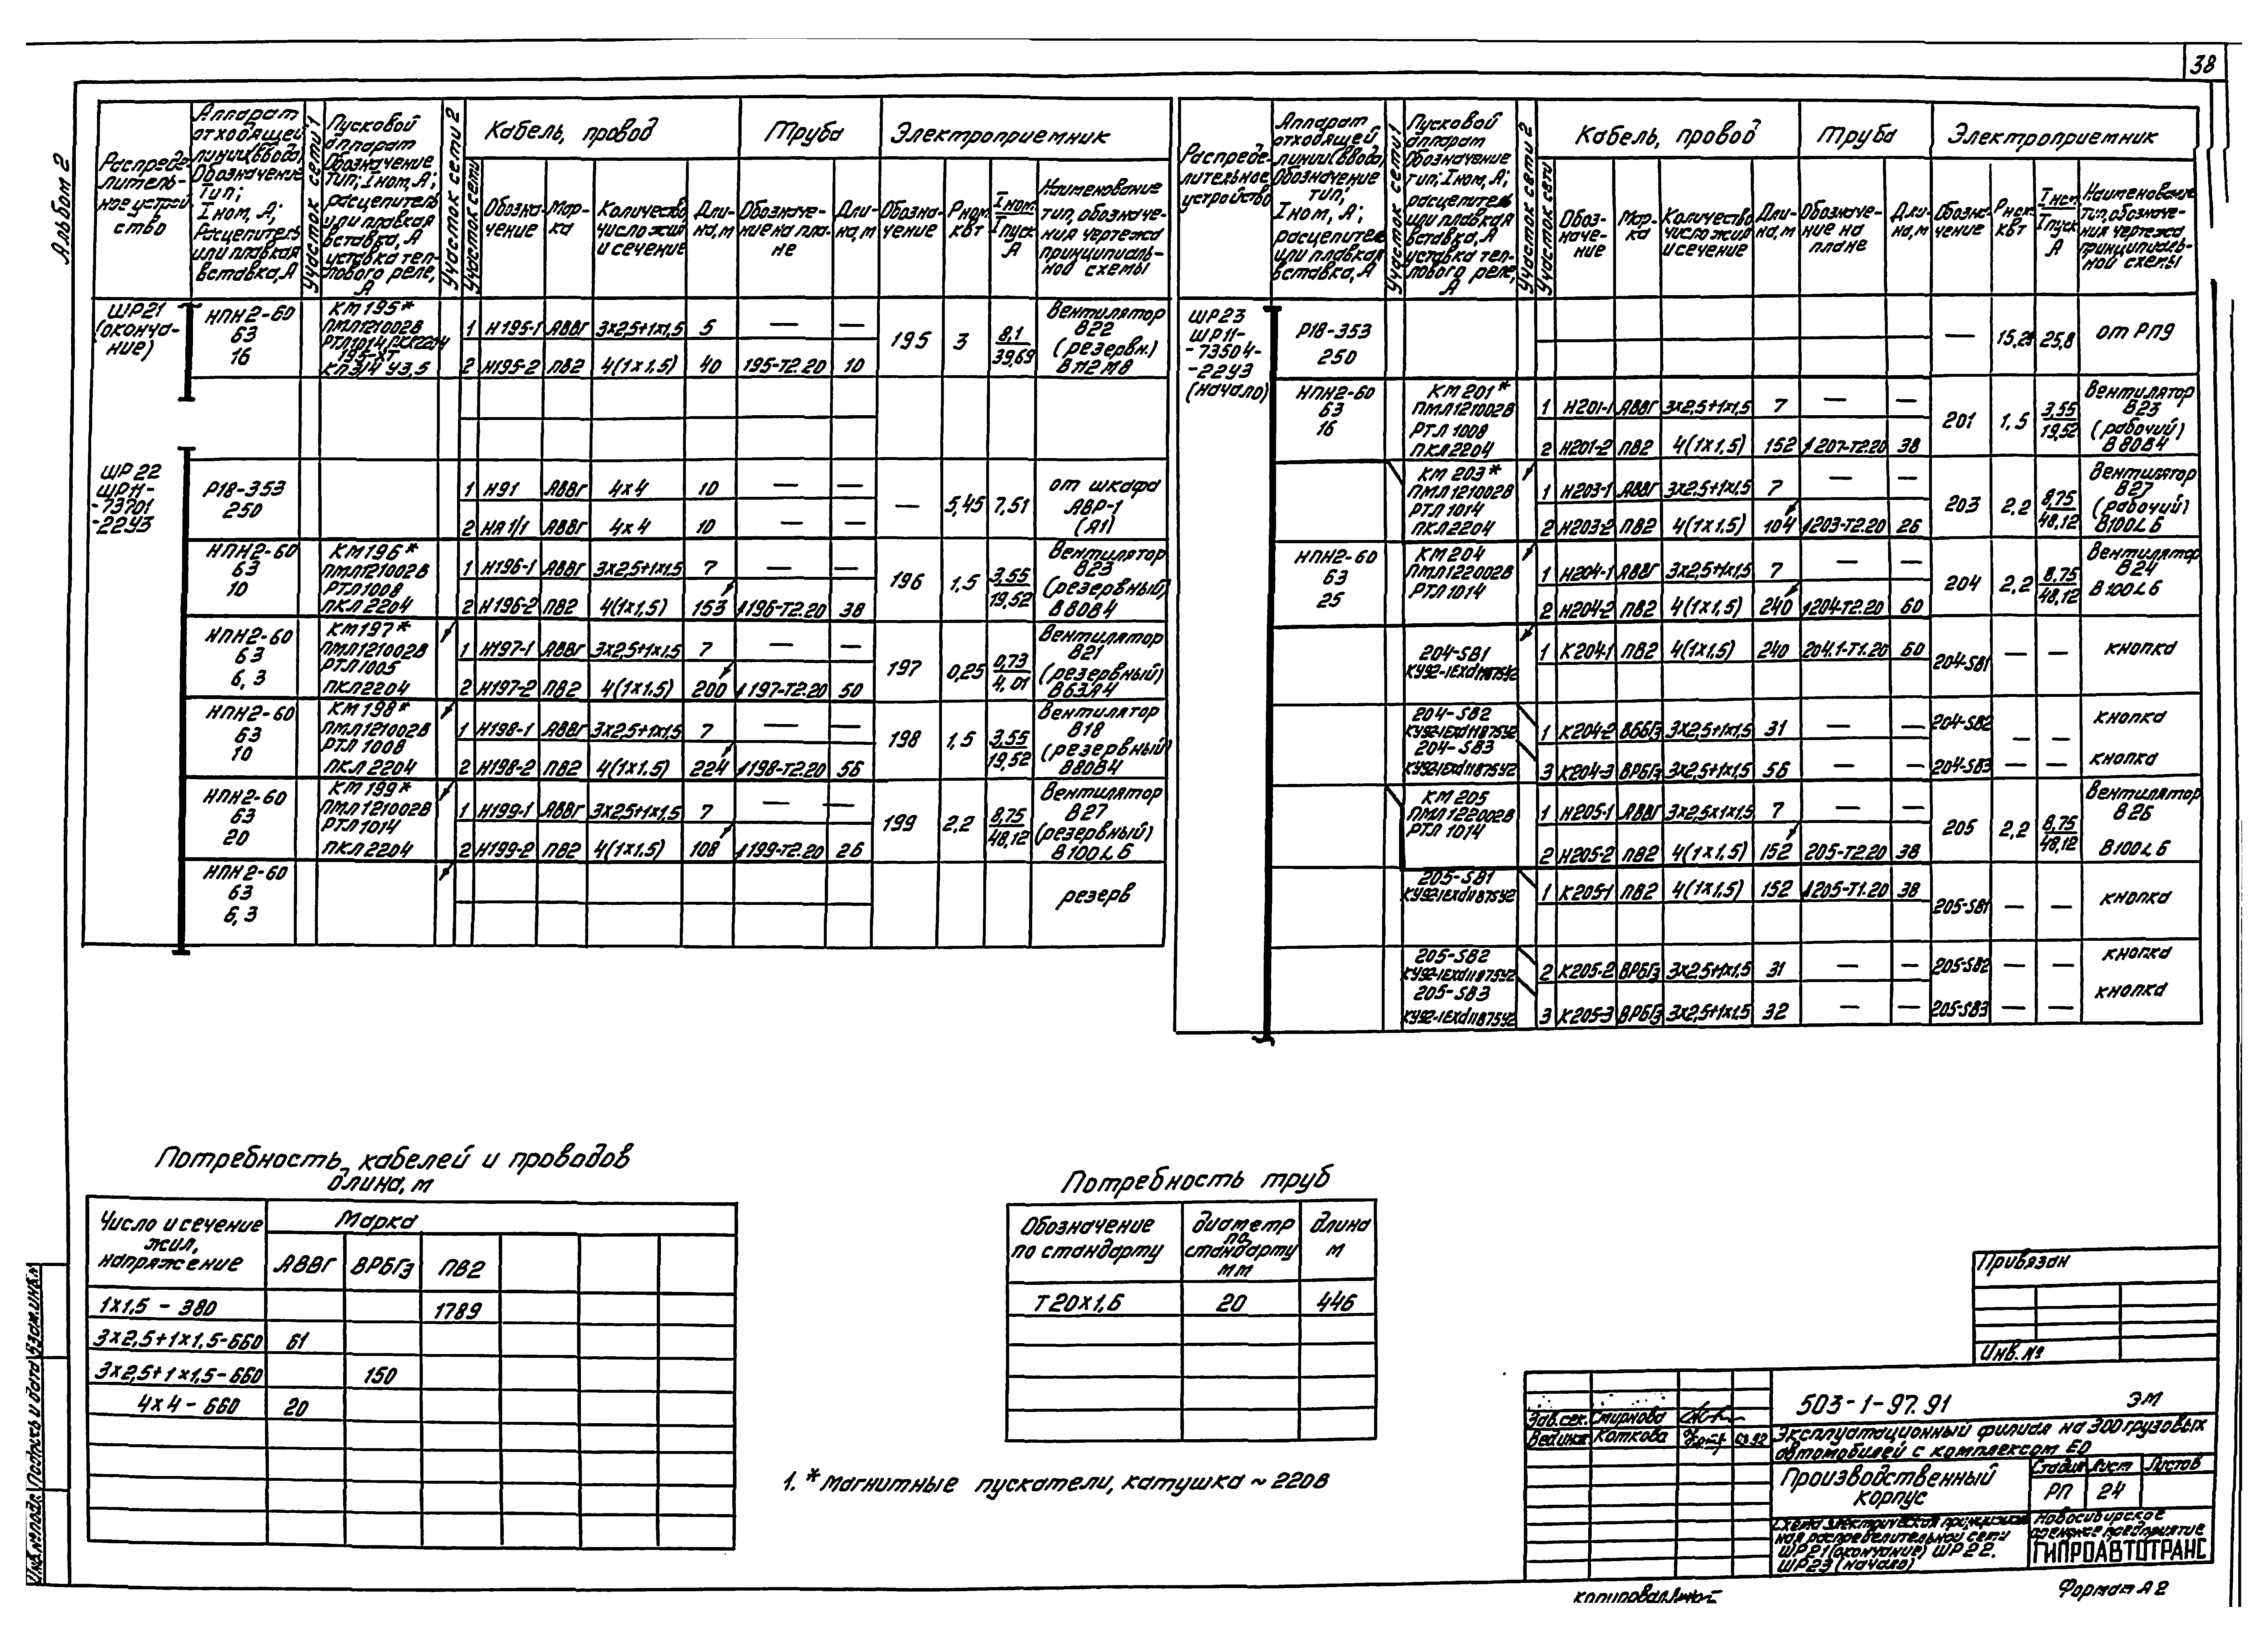 38
Альбом 2
Распреде-
литель-
ное устрой-
ство
Аппарат
отходящей
линии (ввода)
Обозначение
Тип;
Iном, А;
Расцепитель
или плавкая
вставка, А
Участок сети 1
Пусковой
аппарат
Обозначение
тип; Iном, А;
расцепитель
или плавкая
вставка, А
уставка теп-
лового реле,
А
Участок сети 2
Участок сети
Кабель, провод
Обозна-
чение
Мар-
ка
Количество,
число жил
и сечение
Дли-
на, м
Труба
Обозначе-
ние на пла-
не
Дли-
на, м
Электроприемник
Обозна-
чение
Рном.
кВт
Iном.
Iпуск
А
Наименование
тип, обозначе-
ния чертежа
принципиаль-
ной схемы
ШР21
(оконча-
ние)
НПН2-60
63
16
КМ195*
ПМЛ121002В
РТЛ1014 ПКЛ2204
195-ХТ
КПЗ14 У3,5
1 Н195-1 АВВГ 3х2,5+1х1,5 5 — —
2 Н195-2 ПВ2 4(1х1,5) 40 195-Т2.20 10
195 3 8,1
39,69
Вентилятор
В22
(резервн.)
В112М8
ШР22
ШР11-
-73701
-22У3
Р18-353
250
1 Н91 АВВГ 4х4 10 — —
2 НА1/1 АВВГ 4х4 10 — —
— 5,45 7,51
от шкафа
АВР-1
(А1)
НПН2-60
63
10
КМ196*
ПМЛ121002В
РТЛ1008
ПКЛ2204
1 Н196-1 АВВГ 3х2,5+1х1,5 7 — —
2 Н196-2 ПВ2 4(1х1,5) 153 196-Т2.20 38
196 1,5 3,55
19,52
Вентилятор
В23
(резервный)
В80В4
НПН2-60
63
6,3
КМ197*
ПМЛ121002В
РТЛ1005
ПКЛ2204
1 Н197-1 АВВГ 3х2,5+1х1,5 7 — —
2 Н197-2 ПВ2 4(1х1,5) 200 197-Т2.20 50
197 0,25 0,73
4,01
Вентилятор
В21
(резервный)
В63А4
НПН2-60
63
10
КМ198*
ПМЛ121002В
РТЛ1008
ПКЛ2204
1 Н198-1 АВВГ 3х2,5+1х1,5 7 — —
2 Н198-2 ПВ2 4(1х1,5) 224 198-Т2.20 56
198 1,5 3,55
19,52
Вентилятор
В18
(резервный)
В80В4
НПН2-60
63
20
КМ199*
ПМЛ121002В
РТЛ1014
ПКЛ2204
1 Н199-1 АВВГ 3х2,5+1х1,5 7 — —
2 Н199-2 ПВ2 4(1х1,5) 108 199-Т2.20 26
199 2,2 8,75
48,12
Вентилятор
В27
(резервный)
В100L6
НПН2-60
63
6,3
резерв
Распреде-
лительное
устройство
Аппарат
отходящей
линии (ввода)
Обозначение
тип;
Iном, А;
расцепитель
или плавкая
вставка, А
Участок сети 1
Пусковой
аппарат
Обозначение
тип; Iном, А;
расцепитель
или плавкая
вставка, А
уставка теп-
лового реле,
А
Участок сети 2
Участок сети
Кабель, провод
Обоз-
наче-
ние
Мар-
ка
Количество
число жил
и сечение
Дли-
на, м
Труба
Обозначе-
ние на
плане
Дли-
на, м
Электроприемник
Обозна-
чение
Рном.
кВт
Iном.
Iпуск
А
Наименование
тип, обозначе-
ния чертежа
принципиаль-
ной схемы
ШР23
ШР11-
-73504-
-22У3
(начало)
Р18-353
250
— 15,25 25,8 от РП9
НПН2-60
63
16
КМ201*
ПМЛ121002В
РТЛ1008
ПКЛ2204
1 Н201-1 АВВГ 3х2,5+1х1,5 7 — —
2 Н201-2 ПВ2 4(1х1,5) 152 201-Т2.20 38
201 1,5 3,55
19,52
Вентилятор
В23
(рабочий)
В80В4
КМ203*
ПМЛ121002В
РТЛ1014
ПКЛ2204
1 Н203-1 АВВГ 3х2,5+1х1,5 7 — —
2 Н203-2 ПВ2 4(1х1,5) 104 203-Т2.20 26
203 2,2 8,75
48,12
Вентилятор
В27
(рабочий)
В100L6
НПН2-60
63
25
КМ204
ПМЛ122002В
РТЛ1014
1 Н204-1 АВВГ 3х2,5+1х1,5 7 — —
2 Н204-2 ПВ2 4(1х1,5) 240 204-Т2.20 60
204 2,2 8,75
48,12
Вентилятор
В24
В100L6
204-SB1
КУ92-1ЕхdIIВТ5У2
1 К204-1 ПВ2 4(1х1,5) 240 204.1-Т1.20 60
204-SB1 — — кнопка
204-SB2
КУ92-1ЕхdIIВТ5У2
204-SB3
КУ92-1ЕхdIIВТ5У2
1 К204-2 ВББГз 3х2,5+1х1,5 31 — —
204-SB2 — — кнопка
3 К204-3 ВРБГз 3х2,5+1х1,5 56 — —
204-SB3 кнопка
КМ205
ПМЛ122002В
РТЛ1014
1 Н205-1 АВВГ 3х2,5х1х1,5 7 — —
2 Н205-2 ПВ2 4(1х1,5) 152 205-Т2.20 38
205 2,2 8,75
48,12
Вентилятор
В26
В100L6
205-SB1
КУ92-1ЕхdIIВТ5У2
1 К205-1 ПВ2 4(1х1,5) 152 205-Т1.20 38
205-SB1 — — кнопка
205-SB2
КУ92-1ЕхdIIВТ5У2
205-SB3
КУ92-1ЕхdIIВТ5У2
2 К205-2 ВРБГз 3х2,5+1х1,5 31 — —
205-SB2 — — кнопка
3 К205-3 ВРБГз 3х2,5+1х1,5 32 — —
205-SB3 — — кнопка
Потребность кабелей и проводов
длина, м
Число и сечение
жил,
напряжение
Марка
АВВГ ВРБГз ПВ2
1х1,5 - 380 1789
3х2,5+1х1,5-660 61
3х2,5+1х1,5-660 150
4х4-660 20
Потребность труб
Обозначение
по стандарту
диаметр
по
стандарту
мм
длина
м
Т20х1,6 20 446
1. * Магнитные пускатели, катушка ~ 220в
Привязан
Инв. №
503-1-97.91 ЭМ
Зав.сек. Смирнова
Вед.инж Коткова
Эксплуатационный филиал на 300 грузовых
автомобилей с комплексом ЕО
Производственный
корпус
Стадия Лист Листов
РП 24
Схема электрическая принципиаль-
ная распределительной сети
ШР21 (окончание) ШР22.
ШР23 (начало)
Новосибирское
предприятие
ГИПРОАВТОТРАНС
Копировал
Формат А2
Взам.инв.№
Подпись и дата
Инв.№подл.